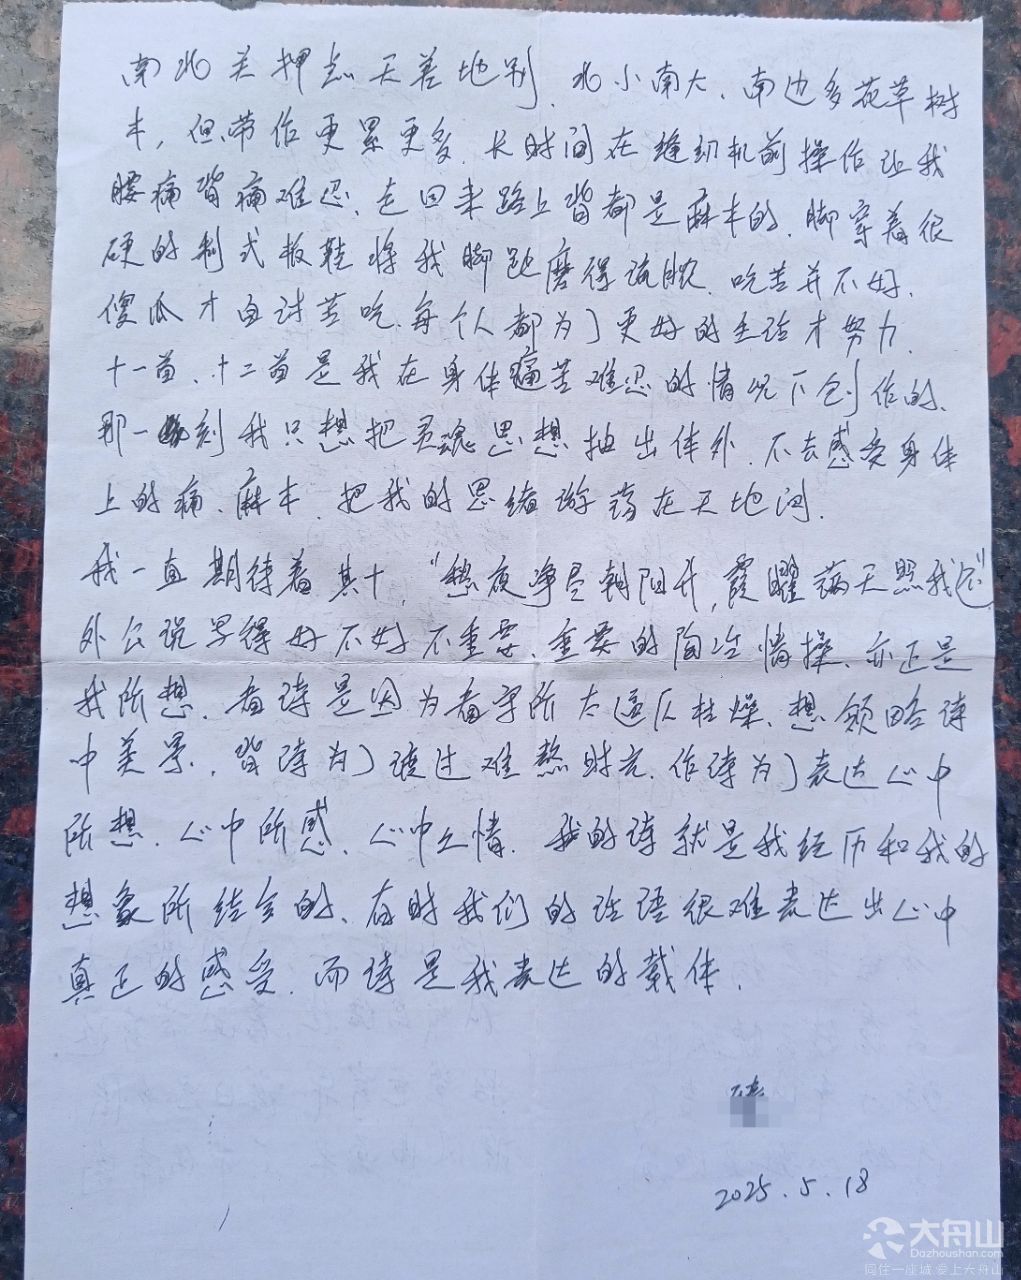 南北关押点天差地别、北小南大、南边多花草树
木,但带作更累更多、长时间在缝纫机前操作让我
腰痛背痛难忍、走回来路上背都是麻木的、脚穿着很
硬的制式板鞋将我脚跑磨得流脓、吃苦并不好、
傻瓜才自讨苦吃、每个人都为了更好的生活才努力、
十一首、十二首是我在身体痛苦难忍的情况下创作的、
那一刻我只想把灵魂思想抽出体外、不去感受身体
上的痛、麻木、把我的思绪游荡在天地间、
我一直期待着其十,"愁夜净尽朝阳升,霞曜满天照我还"
外公说写得好不好不重要、重要的陶冶情操、亦正是
我所想、看诗是因为看守所太逼仄枯燥、想领略诗
中美景、背诗为了渡过难熬时光、作诗为了表达心中
所想、心中所感、心中之情、我的诗就是我经历和我的
想象所结合的、有时我们的话语很难表达出心中
真正的感受、而诗是我表达的载体、
2025.5.18
大舟山
Dazhoushan.com
同住一座城 爱上大舟山